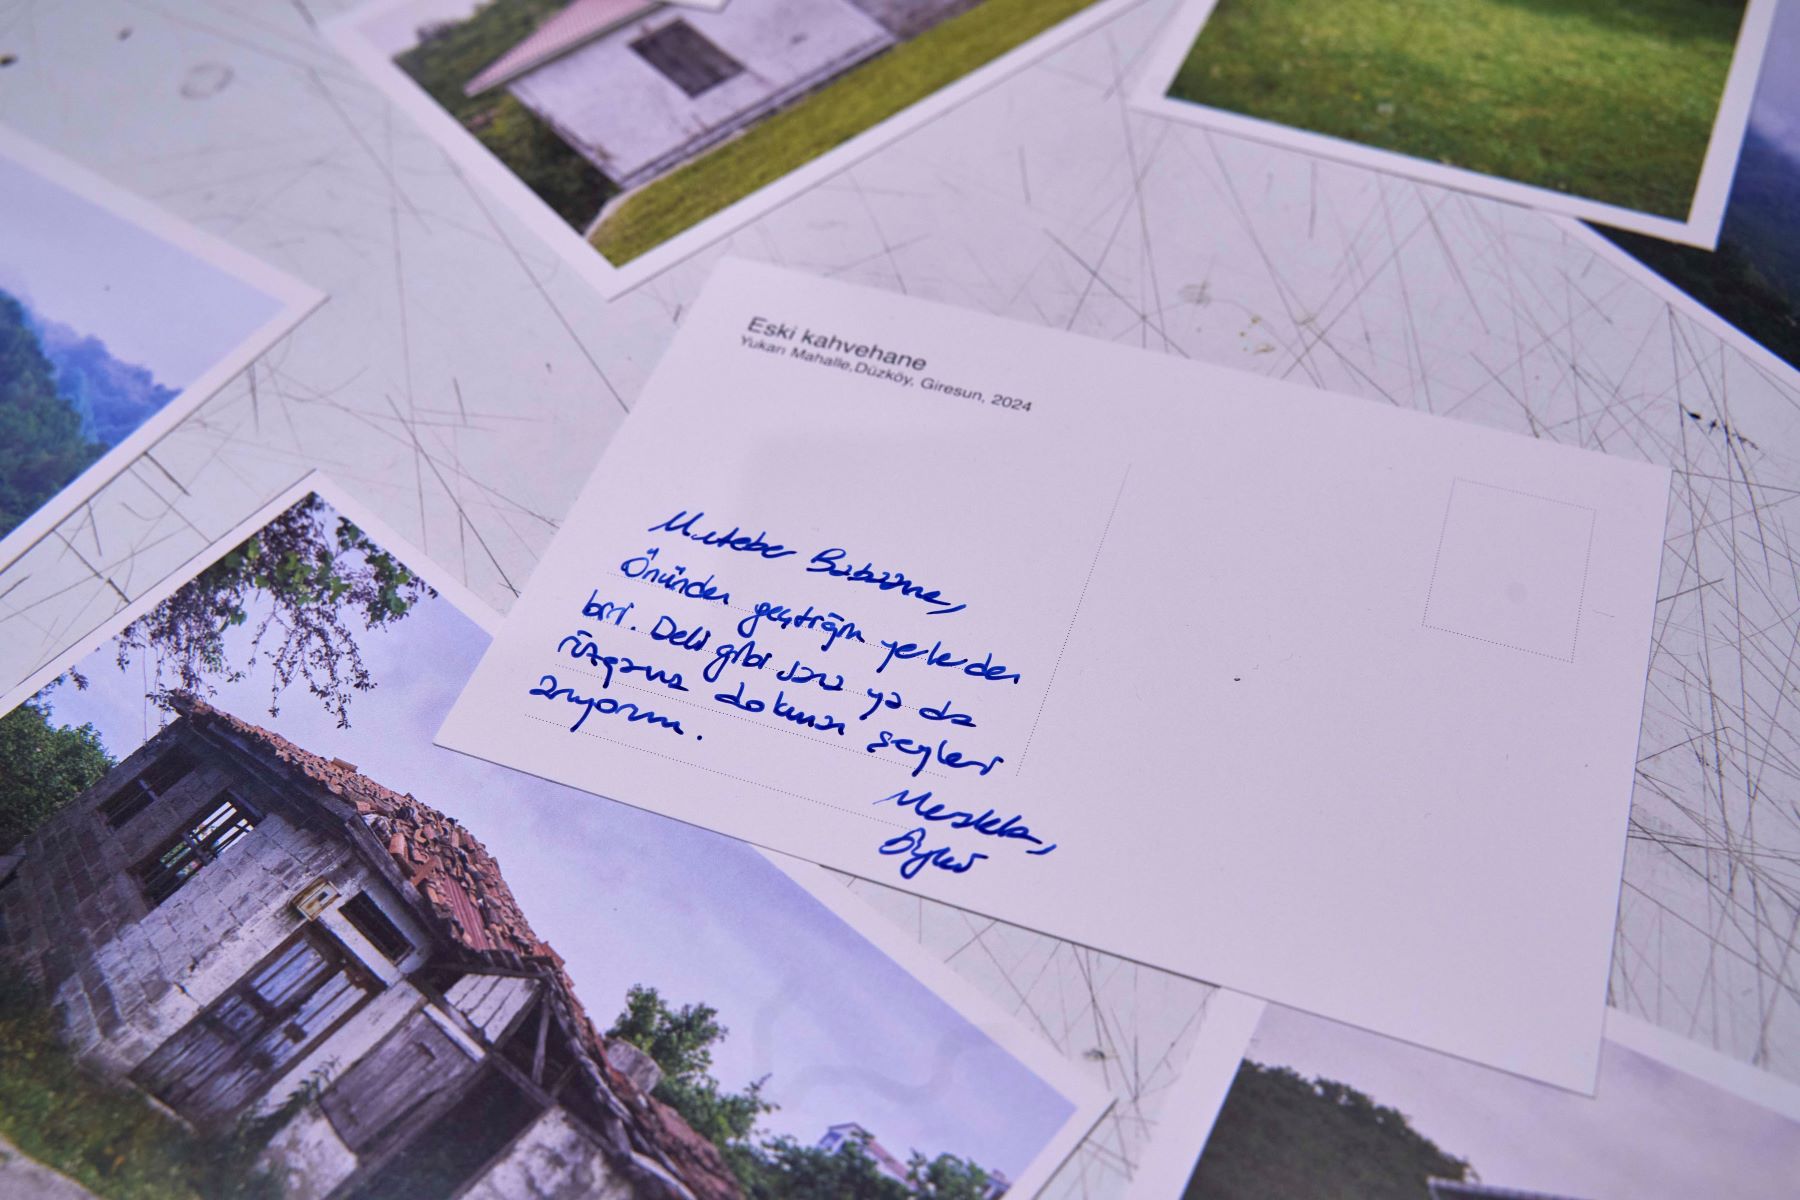 Eski kahvehane
Yukarı Mahalle,Düzköy, Giresun, 2024
Muteber Babaanne,
Önünden geçtiğim yerlerden
biri. Deli gibi sana ya da
rüzgarına dokunan şeyleri
arıyorum.
Öykü